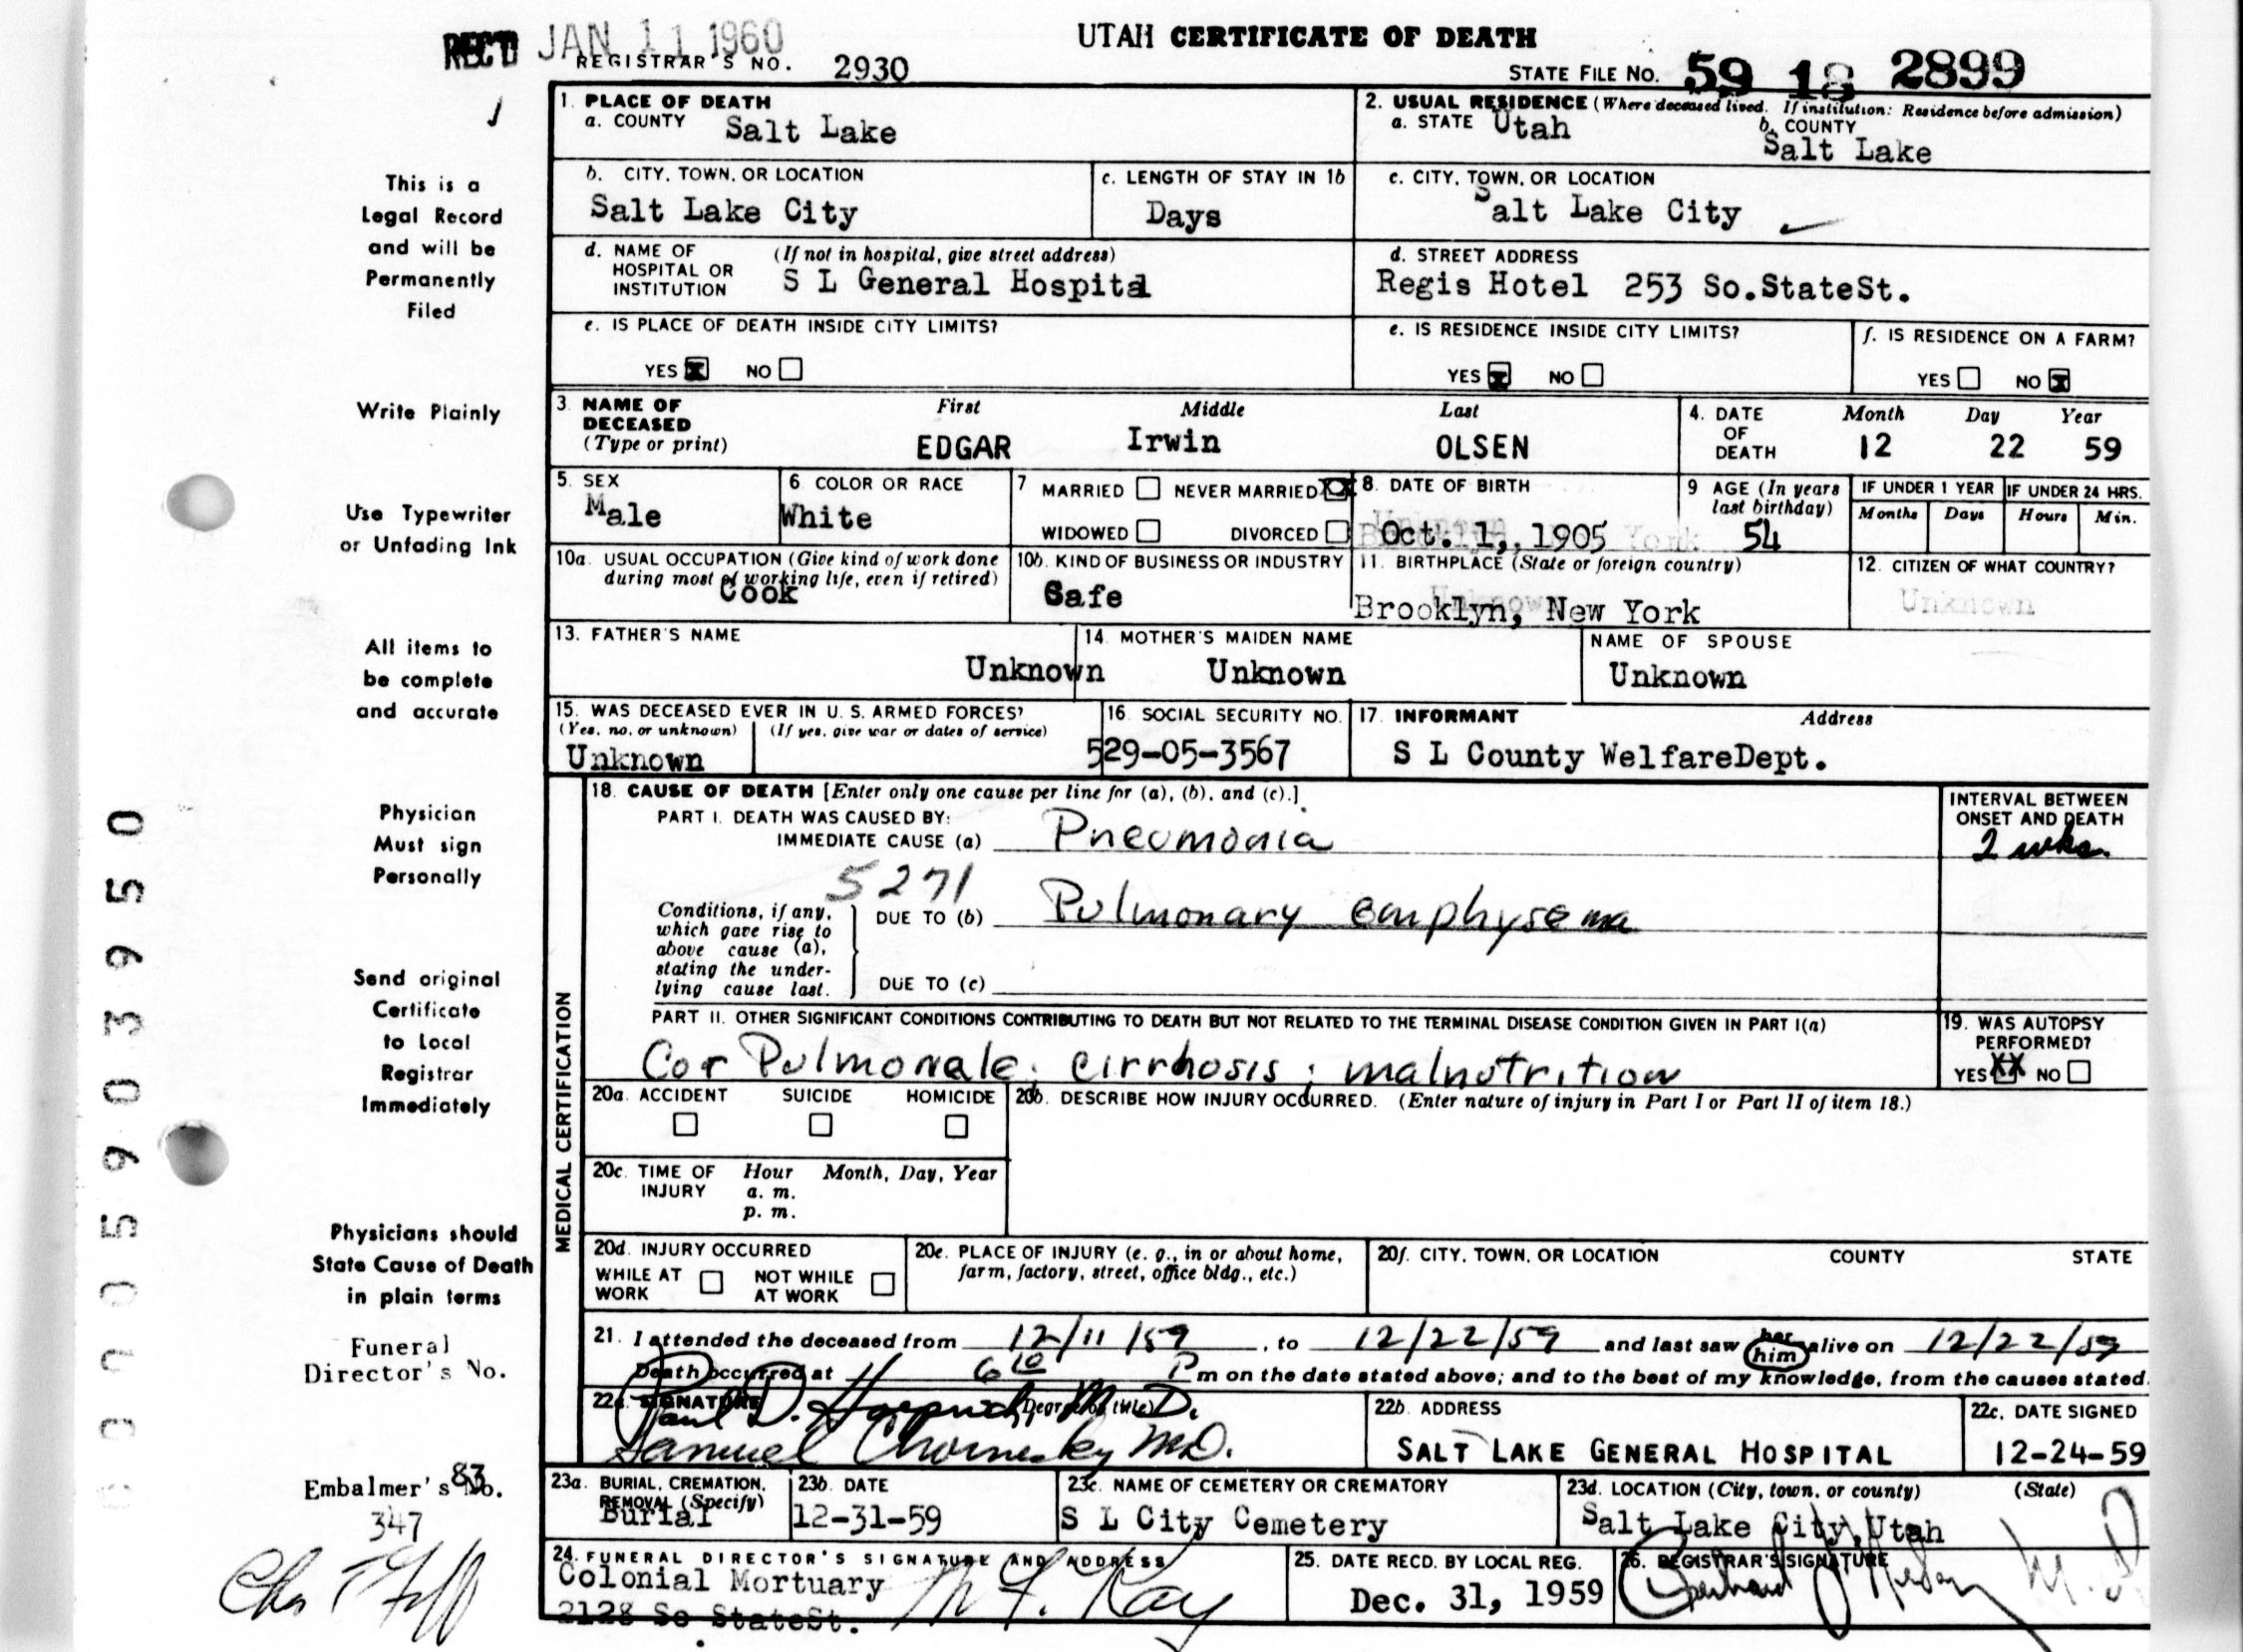 REC'D JAN 11 1960
UTAH CERTIFICATE OF DEATH
REGISTRAR'S NO. 2930
STATE FILE NO. 59 18 2899
1. PLACE OF DEATH
a. COUNTY Salt Lake
2. USUAL RESIDENCE (Where deceased lived. If institution: Residence before admission)
a. STATE Utah
b. COUNTY
Salt Lake
b. CITY, TOWN, OR LOCATION
Salt Lake City
c. LENGTH OF STAY IN 1b
Days
c. CITY, TOWN, OR LOCATION
Salt Lake City
d. NAME OF HOSPITAL OR INSTITUTION
(If not in hospital, give street address)
S L General Hospital
d. STREET ADDRESS
Regis Hotel 253 So.StateSt.
e. IS PLACE OF DEATH INSIDE CITY LIMITS?
YES X NO
e. IS RESIDENCE INSIDE CITY LIMITS?
YES X NO
f. IS RESIDENCE ON A FARM?
YES NO X
3. NAME OF DECEASED
(Type or print)
First Middle Last
EDGAR Irwin OLSEN
4. DATE OF DEATH
Month Day Year
12 22 59
5. SEX
Male
6. COLOR OR RACE
White
7 MARRIED NEVER MARRIED X
WIDOWED DIVORCED
8. DATE OF BIRTH
Oct. 1, 1905
9 AGE (In years last birthday)
54
IF UNDER 1 YEAR
Months Days
IF UNDER 24 HRS.
Hours Min.
10a. USUAL OCCUPATION (Give kind of work done
during most of working life, even if retired)
Cook
10b. KIND OF BUSINESS OR INDUSTRY
Safe
11. BIRTHPLACE (State or foreign country)
Brooklyn, New York
12. CITIZEN OF WHAT COUNTRY?
Unknown
13. FATHER'S NAME
Unknown
14. MOTHER'S MAIDEN NAME
Unknown
NAME OF SPOUSE
Unknown
15. WAS DECEASED EVER IN U. S. ARMED FORCES?
(Yes, no, or unknown) (If yes, give war or dates of service)
Unknown
16. SOCIAL SECURITY NO.
529-05-3567
17. INFORMANT Address
S L County WelfareDept.
MEDICAL CERTIFICATION
18. CAUSE OF DEATH [Enter only one cause per line for (a), (b), and (c).]
PART I. DEATH WAS CAUSED BY:
IMMEDIATE CAUSE (a) Pneumonia
INTERVAL BETWEEN
ONSET AND DEATH
2 wks.
5271
Conditions, if any,
which gave rise to
above cause (a),
stating the under-
lying cause last.
DUE TO (b) Pulmonary emphysema
DUE TO (c)
PART II. OTHER SIGNIFICANT CONDITIONS CONTRIBUTING TO DEATH BUT NOT RELATED TO THE TERMINAL DISEASE CONDITION GIVEN IN PART I(a)
Cor Pulmonale; cirrhosis; malnutrition
19. WAS AUTOPSY
PERFORMED?
YES XX NO
20a. ACCIDENT SUICIDE HOMICIDE
20b. DESCRIBE HOW INJURY OCCURRED. (Enter nature of injury in Part I or Part II of item 18.)
20c. TIME OF INJURY
Hour Month, Day, Year
a. m.
p. m.
20d. INJURY OCCURRED
WHILE AT WORK NOT WHILE AT WORK
20e. PLACE OF INJURY (e. g., in or about home,
farm, factory, street, office bldg., etc.)
20f. CITY, TOWN, OR LOCATION COUNTY STATE
21. I attended the deceased from 12/11/59, to 12/22/59 and last saw her him alive on 12/22/59
Death occurred at 6 10 P m on the date stated above; and to the best of my knowledge, from the causes stated.
22a. SIGNATURE (Degree or title)
Paul D. M.D.
Samuel Chornesky M.D.
22b. ADDRESS
SALT LAKE GENERAL HOSPITAL
22c. DATE SIGNED
12-24-59
23a. BURIAL, CREMATION,
REMOVAL (Specify)
Burial
23b. DATE
12-31-59
23c. NAME OF CEMETERY OR CREMATORY
S L City Cemetery
23d. LOCATION (City, town, or county) (State)
Salt Lake City, Utah
24. FUNERAL DIRECTOR'S SIGNATURE AND ADDRESS
Colonial Mortuary
2128 So StateSt.
25. DATE RECD. BY LOCAL REG.
Dec. 31, 1959
26. REGISTRAR'S SIGNATURE
M.D.
This is a
Legal Record
and will be
Permanently
Filed
Write Plainly
Use Typewriter
or Unfading Ink
All items to
be complete
and accurate
Physician
Must sign
Personally
Send original
Certificate
to Local
Registrar
Immediately
Physicians should
State Cause of Death
in plain terms
Funeral
Director's No.
83
Embalmer's No.
347
0005903950